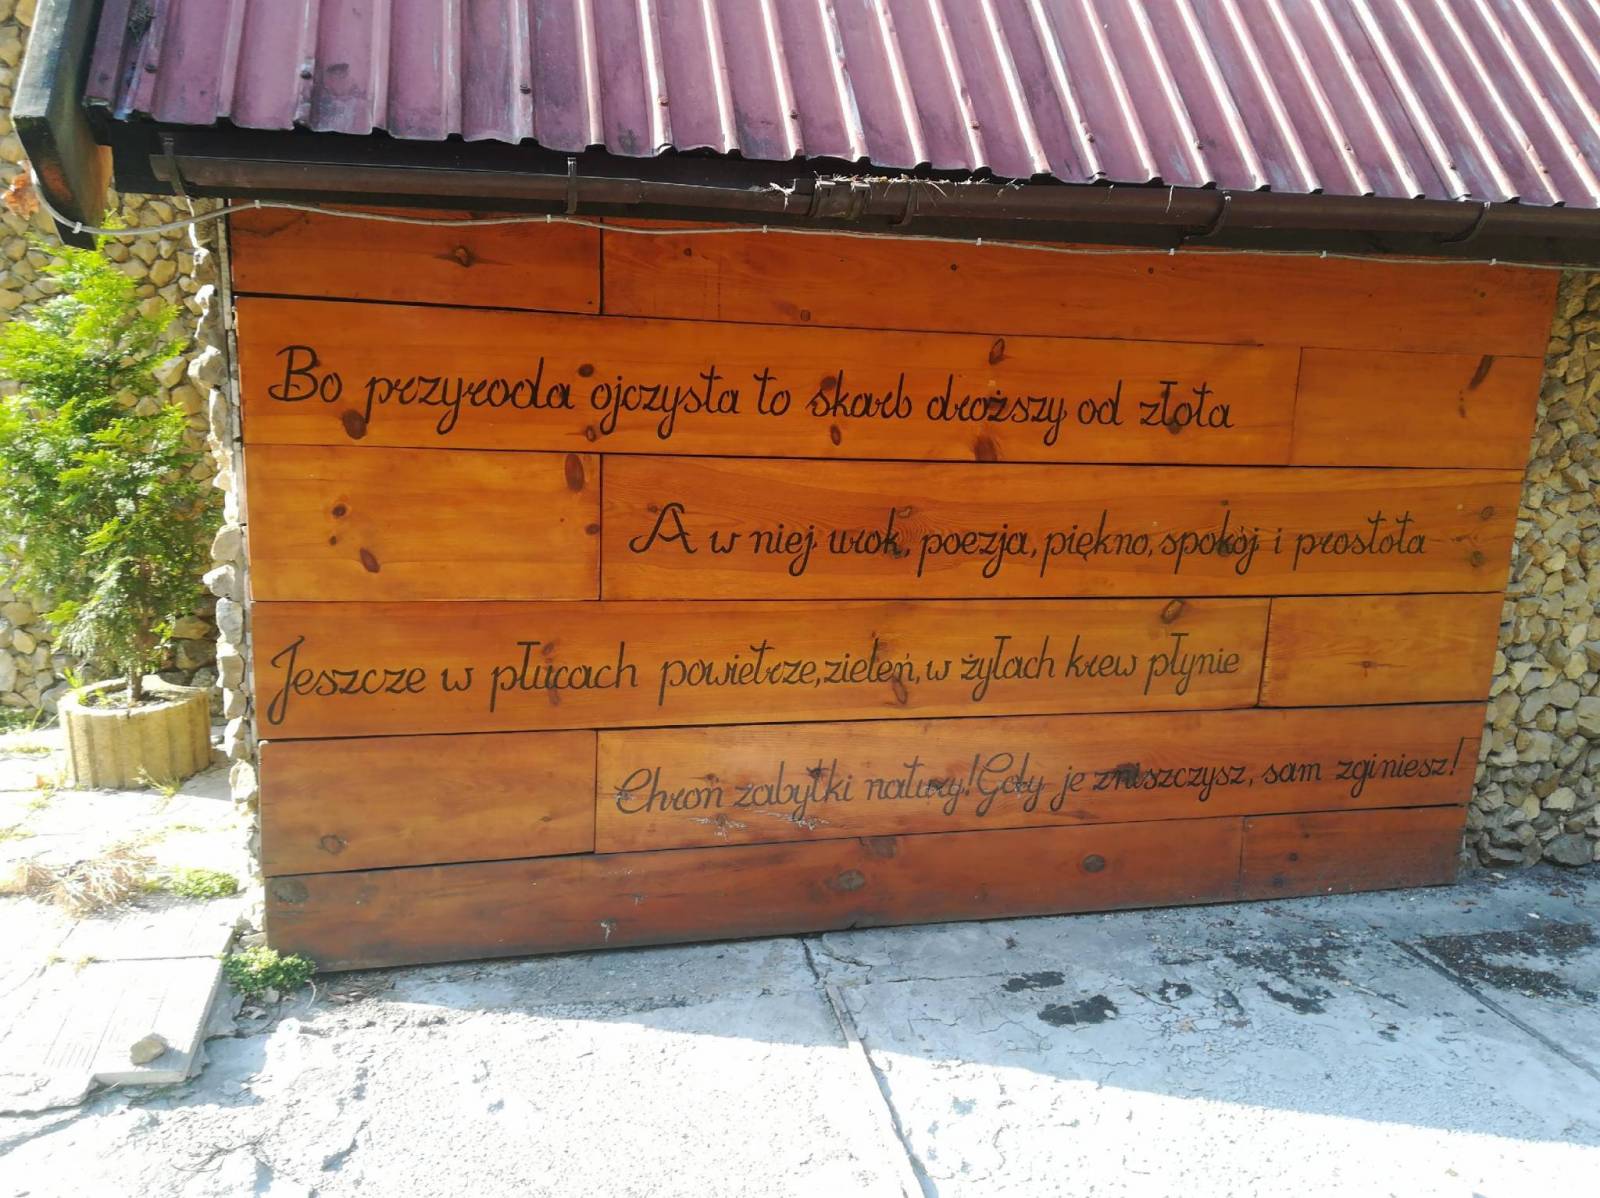 Bo przyroda ojczysta to skarb droższy od złota
A w niej urok, poezja, piękno, spokój i prostota
Jeszcze w płucach powietrze, zieleń, w żyłach krew płynie
Chroń zabytki natury! Gdy je zniszczysz, sam zginiesz!